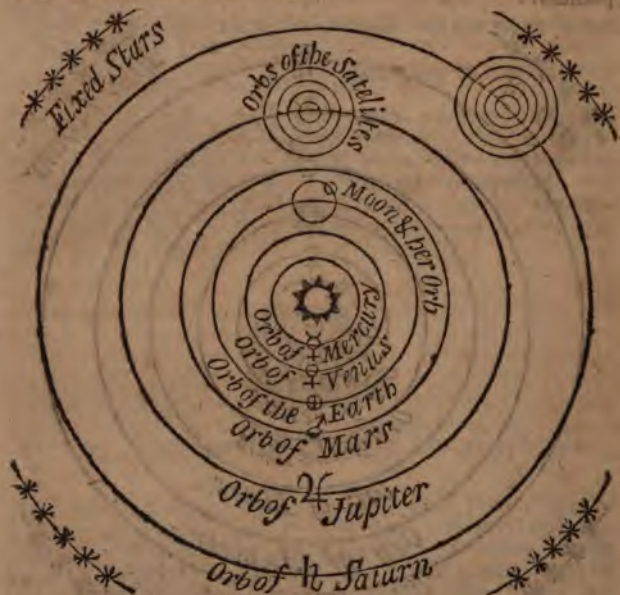 Fixed Stars
Orbs of the Satellites
Moon & her Orb
Orb of ☿ Mercury
Orb of ♀ Venus
Orb of the ⊕ Earth
Orb of ♂ Mars
Orb of ♃ Jupiter
Orb of ♄ Saturn